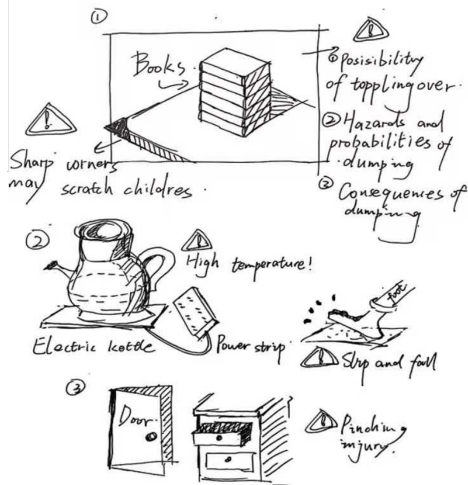 ①
Books
① Posisibility
of toppling over.
② Hazards and
probabilities of
dumping
③ Consequences of
dumping
Sharp corners
may scratch childres.
②
High temperature!
Electric kettle
Power strip.
foot
Slip and fall
③
Door.
Pinching
injury.